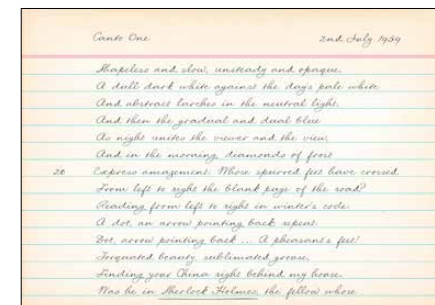 Canto One 2nd July 1959
Shapeless and slow, unsteady and opaque,
A dull dark white against the day's pale white
And abstract larches in the neutral light.
And then the gradual and dual blue
As night unites the viewer and the view,
And in the morning, diamonds of frost
20 Express amazement: Whose spurred feet have crossed
From left to right the blank page of the road?
Reading from left to right in winter's code:
A dot, an arrow pointing back; repeat:
Dot, arrow pointing back ... A pheasant's feet!
Torquated beauty, sublimated grouse,
Finding your China right behind my house.
Was he in Sherlock Holmes, the fellow whose